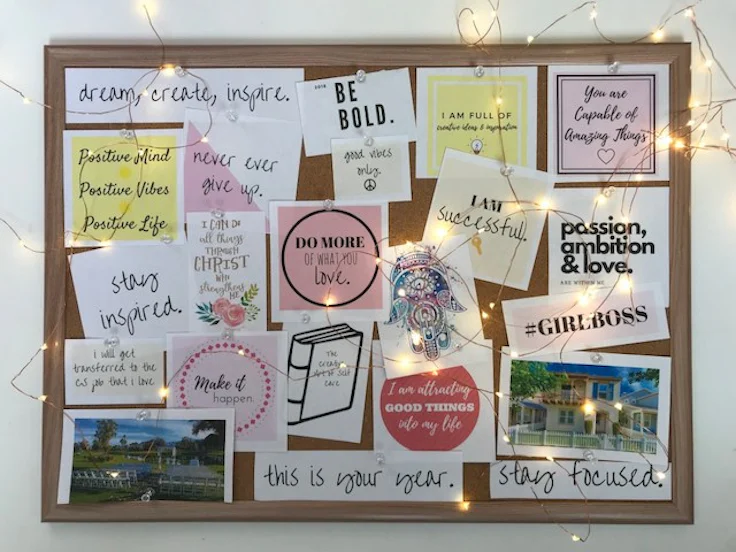 dream, create, inspire.
2018
BE
BOLD.
I AM FULL OF
creative ideas & inspiration
You are
Capable of
Amazing Things
Positive Mind
Positive Vibes
Positive Life
never ever
give up.
good vibes
only.
I AM
successful.
I CAN DO
all things
THROUGH
CHRIST
WHO
strengthens
ME
DO MORE
OF WHAT YOU
love.
passion,
ambition
& love.
ARE WITHIN ME
stay
inspired.
#GIRLBOSS
i will get
transferred to the
CJ job that i love
Make it
happen.
The
Art of Self
care
I am attracting
GOOD THINGS
into my life
this is your year.
stay focused.